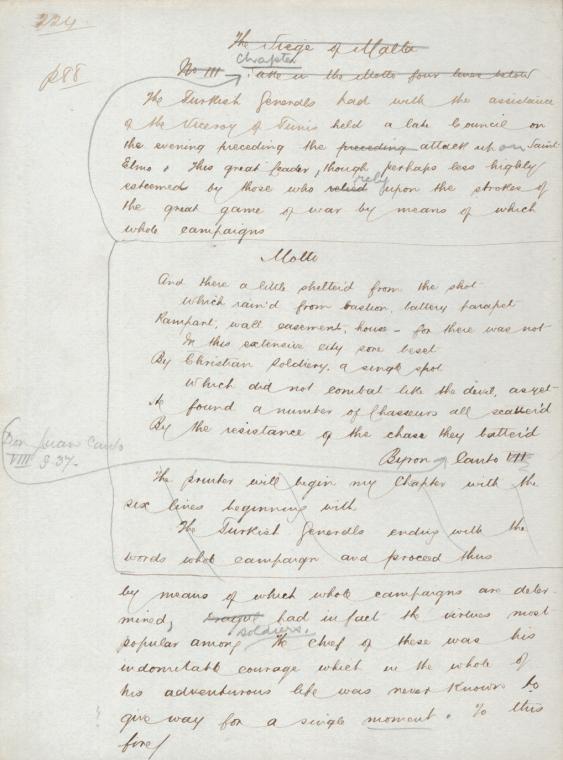 224
The Siege of Malta
Chapter
p 88
No III take in the Motto four lines below
The Turkish Generals had with the assistance
of the Viceroy of Tunis held a late Council on
the evening preceding the preceding attack upon Saint
Elmo. This great leader, though perhaps less highly
rely
esteemed by those who relied upon the strokes of
the great game of war by means of which
whole campaigns
Motto
And there a little shelter'd from the shot
Which rain'd from bastion, battery parapet
Rampart, wall casement, house – for there was not
In this extensive city sore beset
By Christian Soldiery, a single spot
Which did not combat like the devil, as yet
He found a number of Chasseurs all scatter'd
By the resistance of the chase they batter'd
Byron Canto VII
Don Juan Canto
VIII S 37.
The printer will begin my Chapter with the
six lines beginning with
The Turkish Generals ending with the
words whole campaign and proceed thus
by means of which whole campaigns are deter-
mined, had in fact the virtues most
soldiers.
popular among The chief of these was his
indomitable courage which in the whole of
his adventurous life was never known to
give way for a single moment. To this
fire/